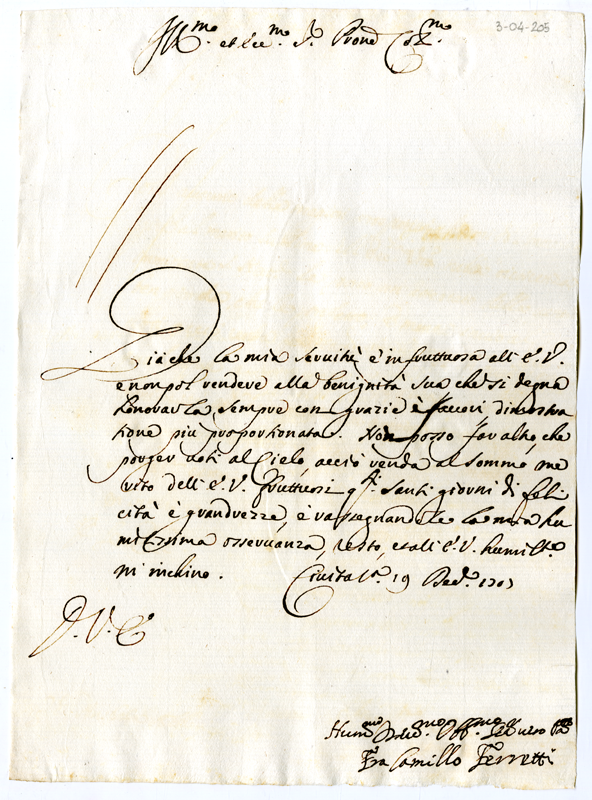 Ill.mo et Ecc.mo S.r Prone Col.mo
3-04-205
Giache la mia servitù è infruttuosa all' E. V.
e non pol rendere alla benignità sua che si degna
honorarla sempre con grazie è favori dimostra
tione più proportionata. Non posso far altro, che
porger voti al Cielo, acciò renda al sommo me
rito dell' E. V. fruttuosi q.ti Santi giorni di feli
cità è grandezze, è rassegnandole la mia hu
milissima osservanza, resto, et all' E. V. humilte.
mi inchino. Civita 19 1703
D. V. E.
Hum.mo
Fra Camillo Ferretti